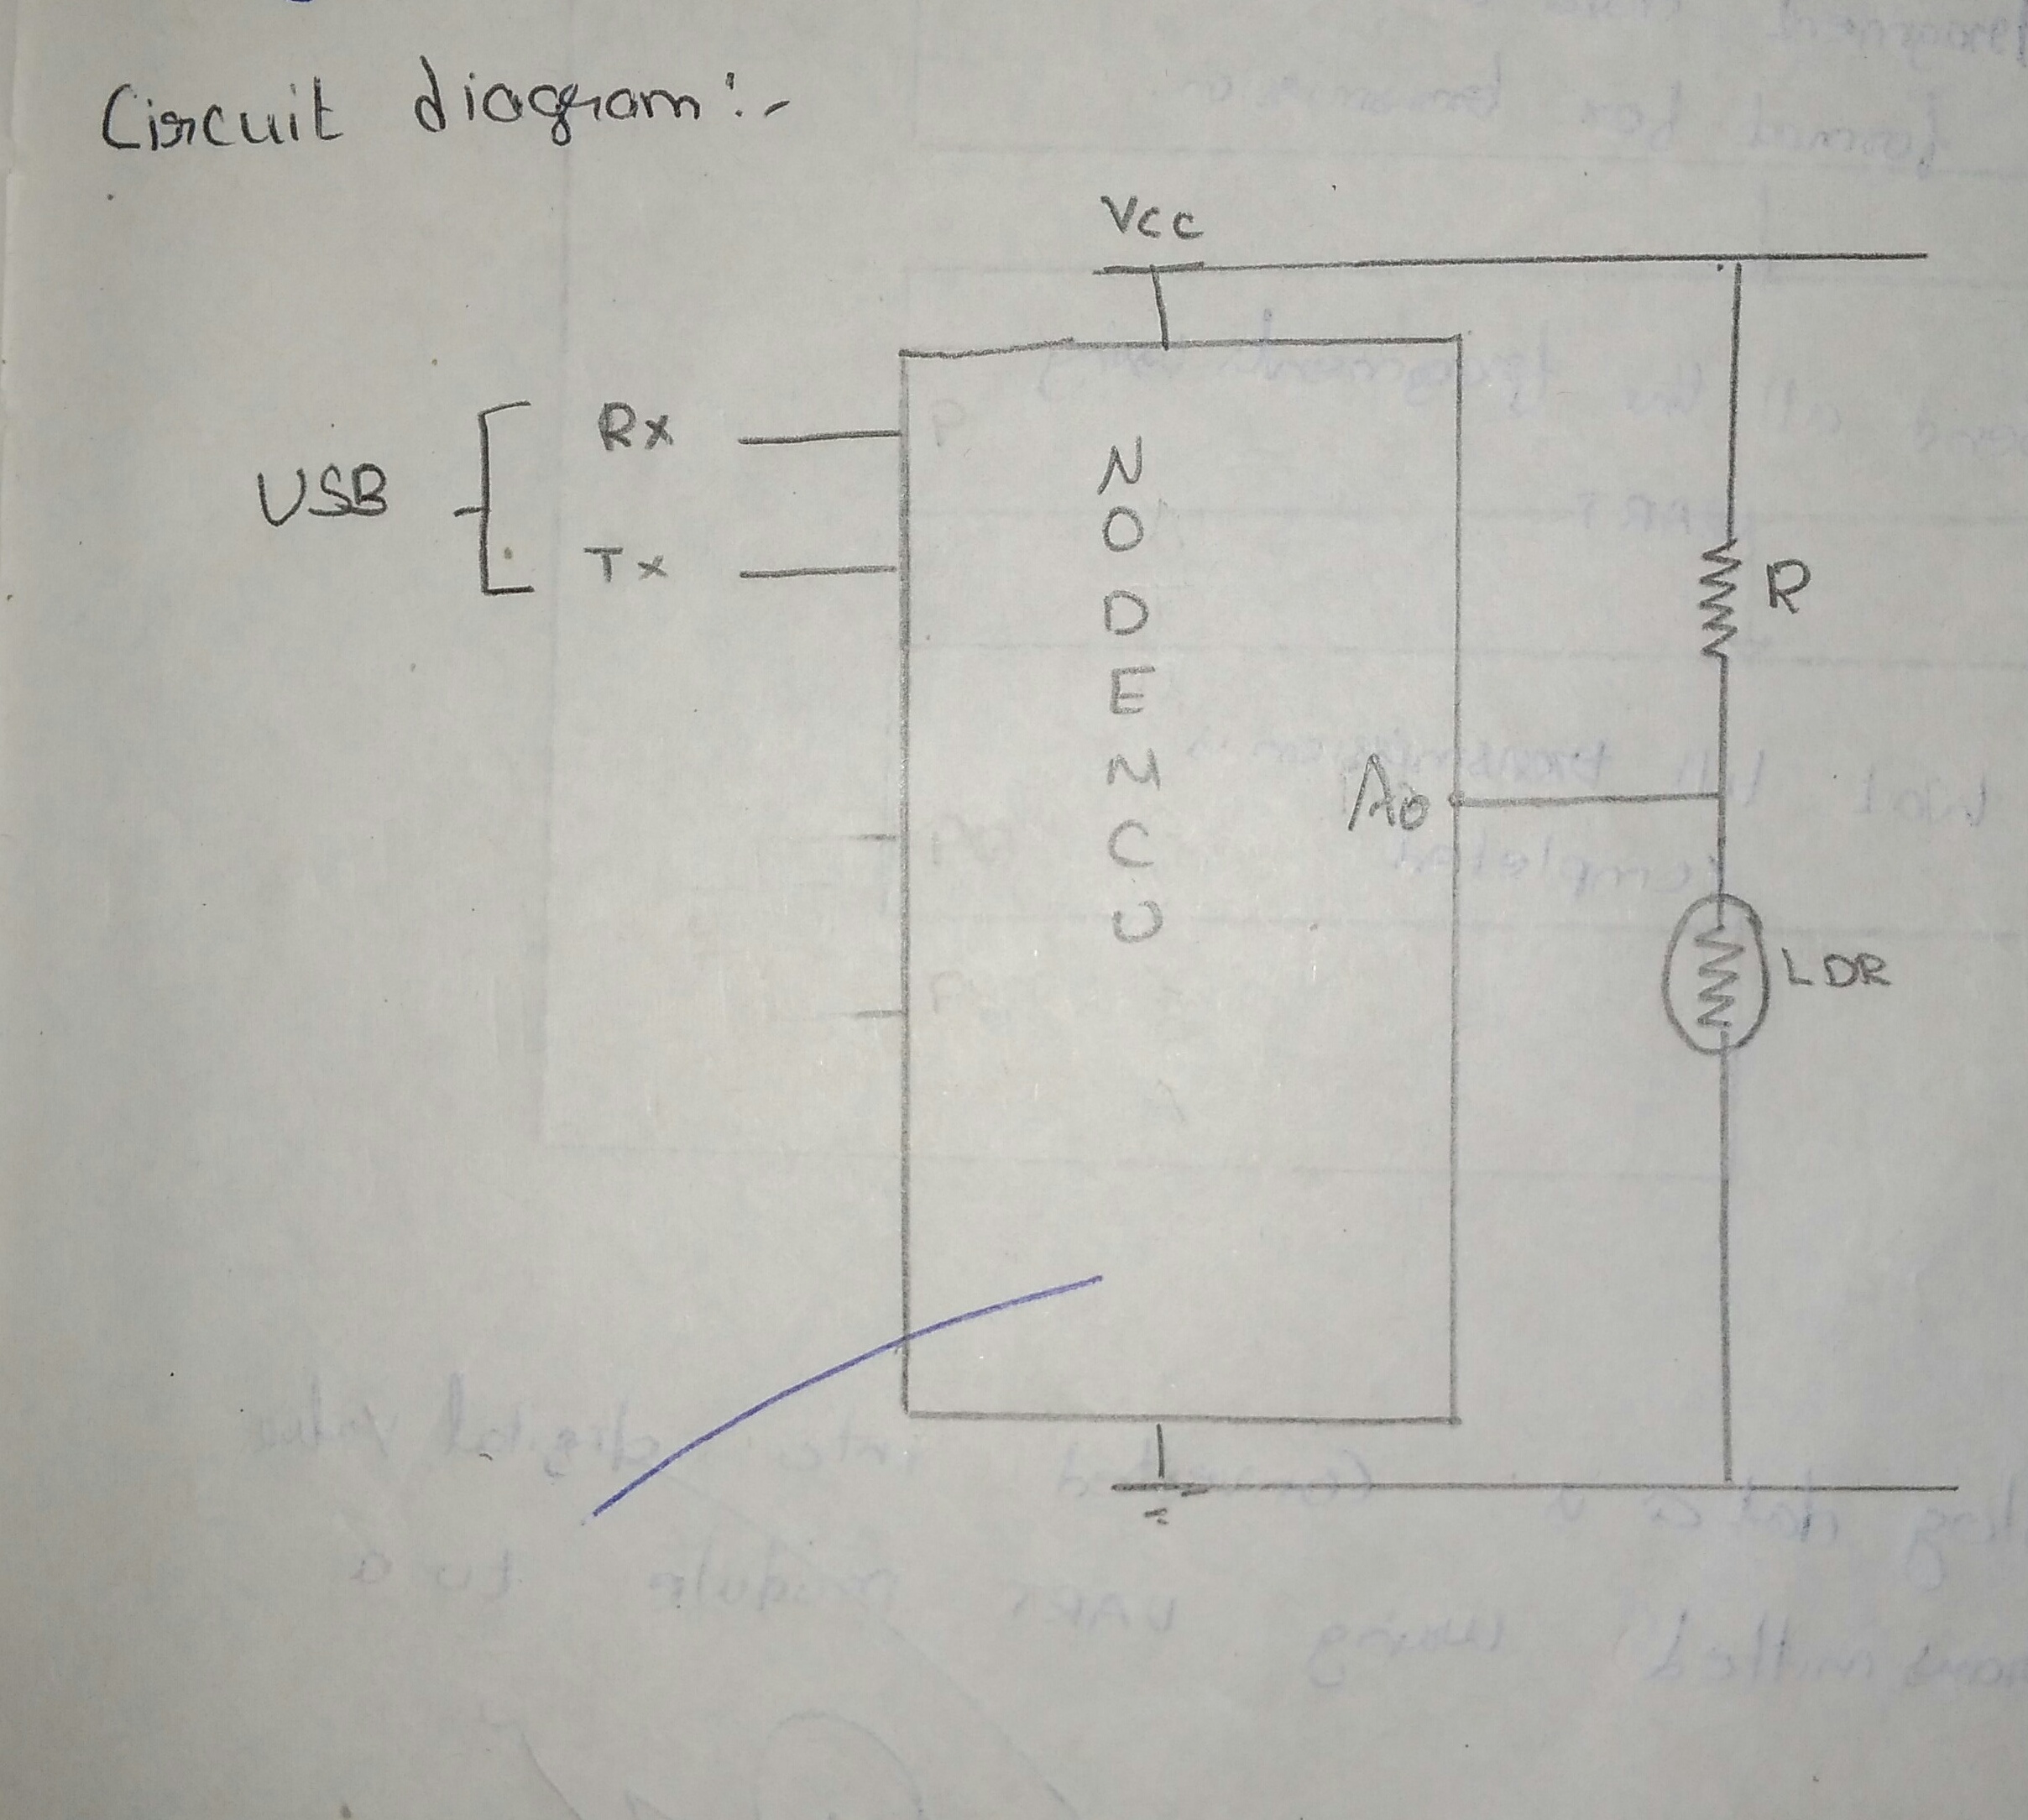 Circuit diagram :-
Vcc
USB
Rx
Tx
NODEMCU
R
A0
LDR